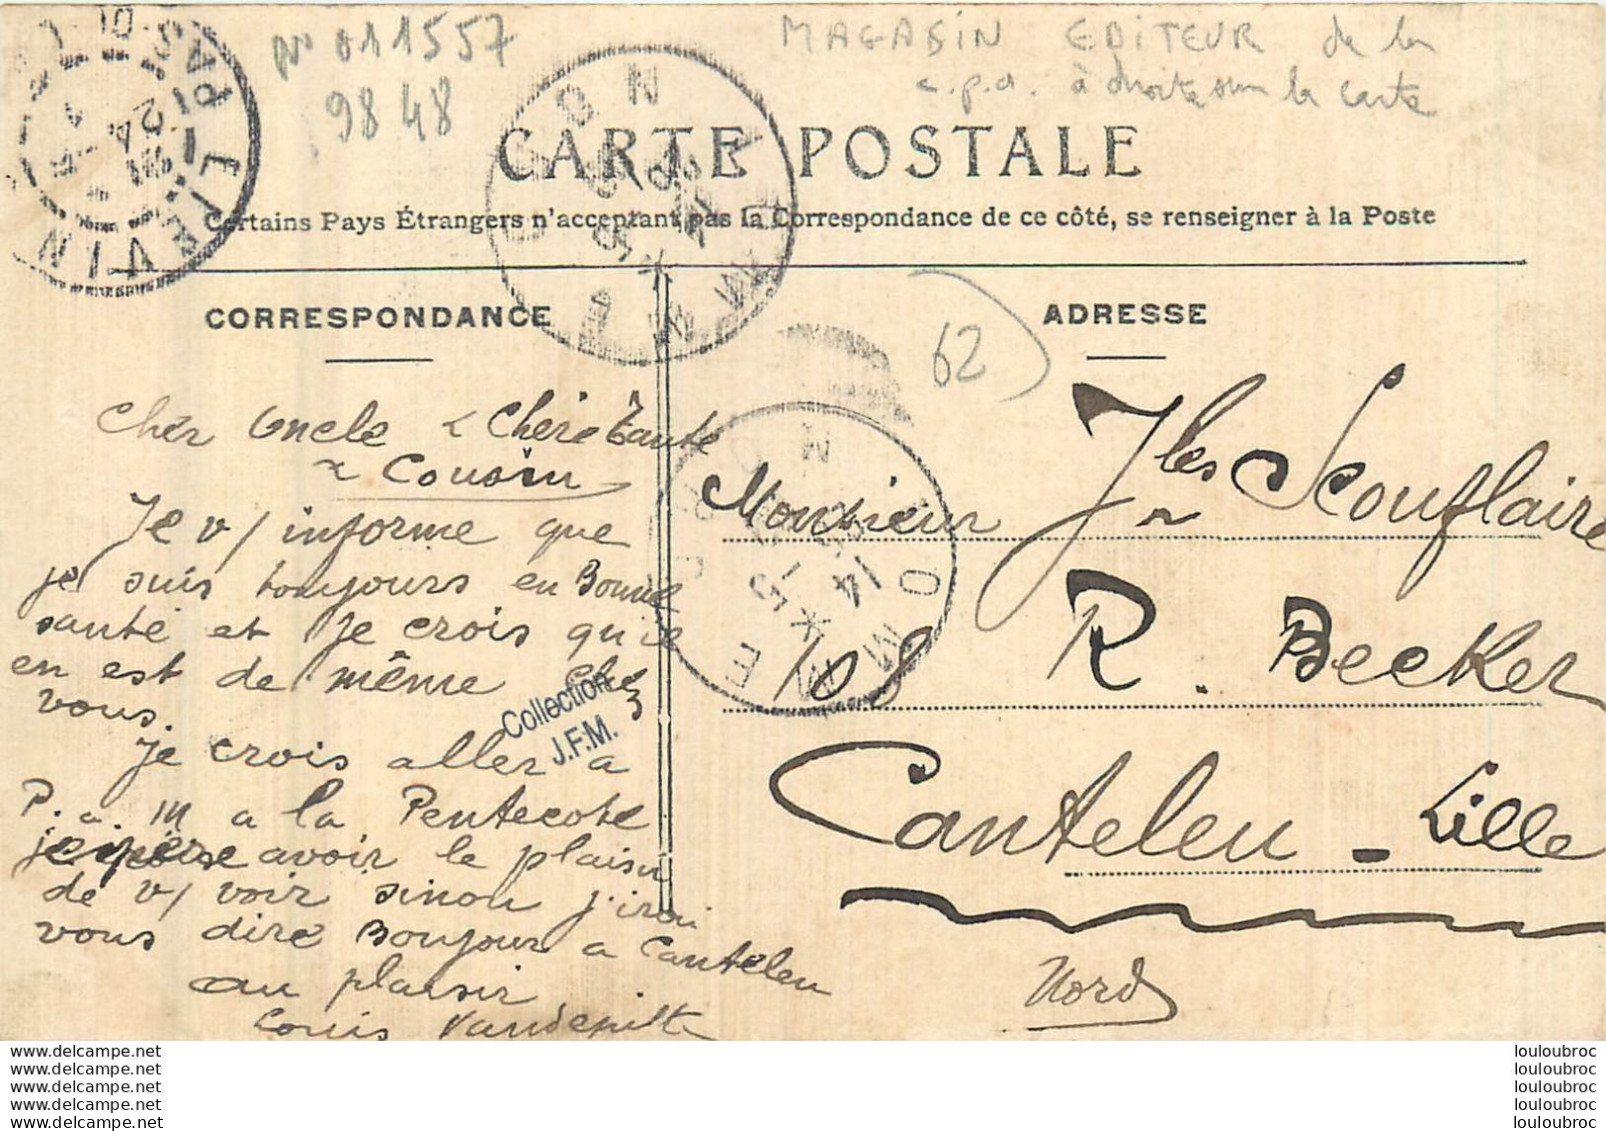 N° 011557
9848
MAGASIN EDITEUR de la
c.p.a. à droite sur la carte
LIEVIN
PAS-DE-
CARTE POSTALE
Certains Pays Étrangers n'acceptent pas la Correspondance de ce côté, se renseigner à la Poste
CORRESPONDANCE
Cher Oncle & Chère Tante
& Cousin
Je v/ informe que
je suis toujours en Bonne
santé et je crois qu'ie
en est de même Chez
vous.
je crois aller a
P. a. M a la Pentecote
jespère avoir le plaisir
de v/ voir sinon j'irai
vous dire Bonjour a Canteleu
au plaisir
Louis Vandeputte
Collection
J.F.M.
ADRESSE
62
Monsieur Jles Scouflaire
108 R. Becker
Canteleu - Lille
Nord
www.delcampe.net
www.delcampe.net
www.delcampe.net
www.delcampe.net
www.delcampe.net
louloubroc
louloubroc
louloubroc
louloubroc
louloubroc